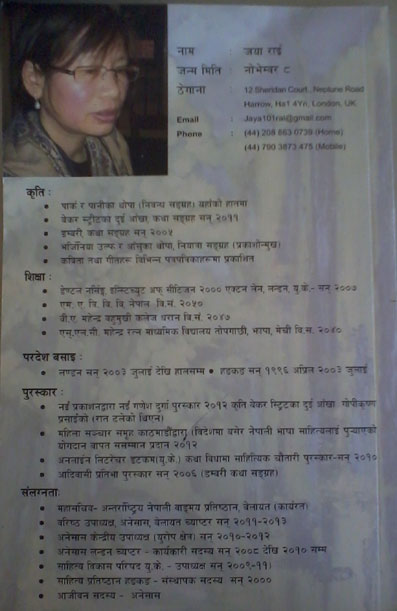 नाम : जया राई
जन्म मिति : नोभेम्बर ८
ठेगाना : 12 Sheridan Court, Neptune Road
Harrow, Ha1 4Yn, London, UK
Email : Jaya101rai@gmail.com
Phone : (44) 208 863 0739 (Home)
(44) 790 3873 475 (Mobile)
कृति :
र पानीका थोपा (निबन्ध सङग्रह) यहाँको हातमा
बेकर स्ट्रीटका दुई आँखा, कथा सङग्रह सन् २०११
डम्बरी कथा सङग्रह सन् २००५
भर्जिनिया उल्फ र आँसुका थोपा, नियात्रा सङग्रह (प्रकाशोन्मुख)
कविता तथा गीतहरू विभिन्न पत्रपत्रिकाहरूमा प्रकाशित
शिक्षा :
नर्सिङ्ग, इन्स्टिच्युट अफ् सीटिजन २००० एक्टन लेन, लन्डन, यु.के.- सन् २००७
एम. ए. त्रि. वि. वि. नेपाल वि.सं. २०५०
वी.ए. महेन्द्र बहुमुखी कलेज धरान वि.सं. २०४७
एस्.एल.सी. महेन्द्र रत्न माध्यमिक विद्यालय तोपगाछी, झापा, मेची वि.सं. २०४०
परदेश बसाइ :
लण्डन सन् २००३ जुलाई देखि हालसम्म • हङकङ सन् १९९६ अप्रिल २००३ जुलाई
पुरस्कार :
नई प्रकाशनद्वारा नई गणेश दुर्गा पुरस्कार २०१२ कृति बेकर स्ट्रिटका दुई आँखा, गोपीकृष्ण
प्रसाईको (रात ढलेको बिएन)
महिला सञ्चार समुह काठमाडौंद्वारा (विदेशमा बसेर नेपाली भाषा साहित्यलाई पुऱ्याएको
योगदान बापत सम्मान प्रदान २०१२
अनलाईन लिटिरेचर डटकम(यु.के.) कथा विधामा साहित्यिक चौतारी पुरस्कार-सन् २०१०
आदिवासी प्रतिभा पुरस्कार सन् २००६ (डम्बरी कथा सङग्रह)
संलग्नता:
महासचिव- अन्तर्राष्ट्रिय नेपाली वाङमय प्रतिष्ठान, बेलायत (कार्यरत)
वरिष्ठ उपाध्यक्ष, अनेसास, बेलायत च्याप्टर सन् २०११-२०१३
अनेसास केन्द्रीय उपाध्यक्ष (युरोप क्षेत्र) सन् २०१०-२०१२
अनेसास लन्डन च्याप्टर - कार्यकारी सदस्य सन् २००८ देखि २०१० सम्म
साहित्य विकास परिषद यु.के. - उपाध्यक्ष सन् २००९-११)
साहित्य प्रतिष्ठान हङकङ - संस्थापक सदस्य सन् २०००
आजीवन सदस्य - अनेसास